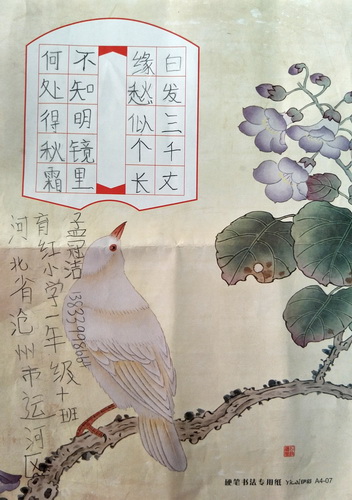 白发三千丈
缘愁似个长
不知明镜里
何处得秋霜
孟冠洁
育红小学一年级十班
河北省沧州市运河区
硬笔书法专用纸
A4-07